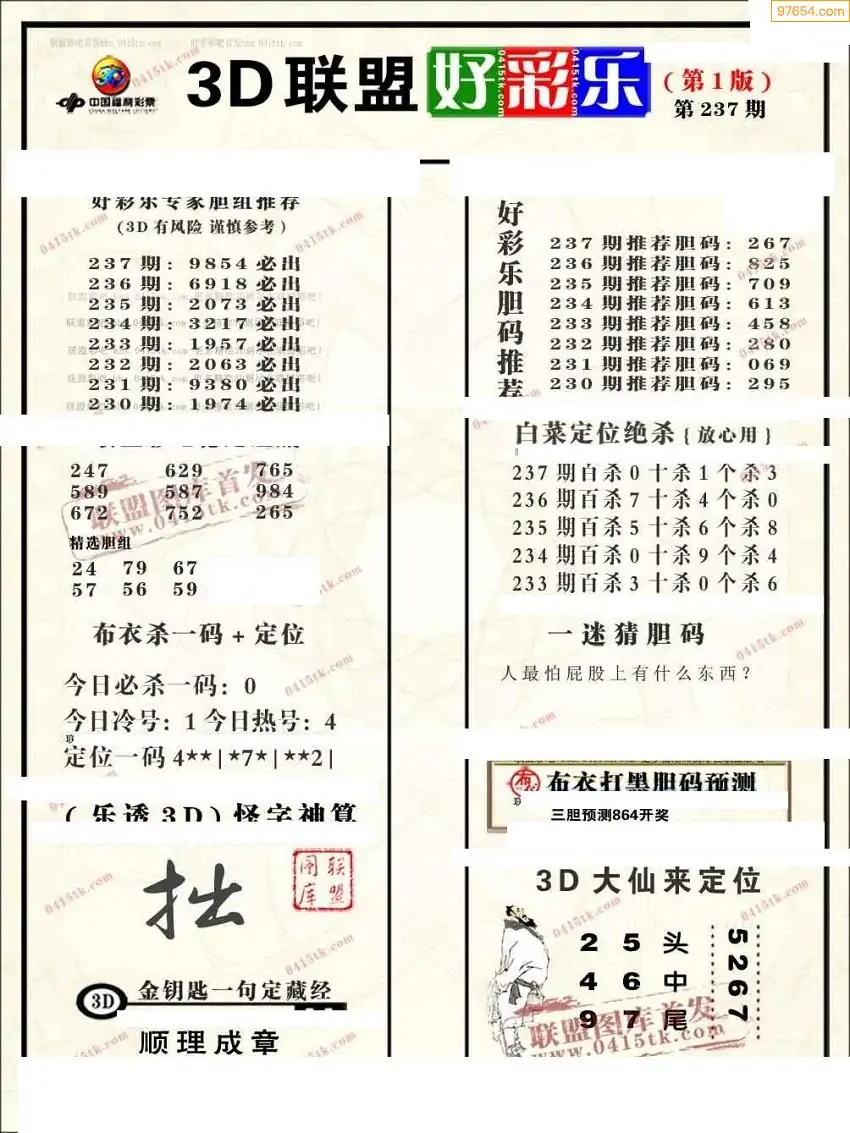 97654.com
中国福利彩票
CHINA WELFARE LOTTERY
3D联盟好彩乐
(第1版)
第237期
好彩乐专家胆组推荐
(3D有风险 谨慎参考)
237期: 9854必出
236期: 6918必出
235期: 2073必出
234期: 3217必出
233期: 1957必出
232期: 2063必出
231期: 9380必出
230期: 1974必出
247 629 765
589 587 984
672 752 265
精选胆组
24 79 67
57 56 59
布衣杀一码+定位
今日必杀一码: 0
今日冷号: 1 今日热号: 4
定位一码 4**|*7*|**2|
(乐透3D)怪字神算
拙
联盟图库
3D 金钥匙一句定藏经
顺理成章
好彩乐胆码推荐
237期推荐胆码: 267
236期推荐胆码: 825
235期推荐胆码: 709
234期推荐胆码: 613
233期推荐胆码: 458
232期推荐胆码: 280
231期推荐胆码: 069
230期推荐胆码: 295
白菜定位绝杀{放心用}
237期百杀0十杀1个杀3
236期百杀7十杀4个杀0
235期百杀5十杀6个杀8
234期百杀0十杀9个杀4
233期百杀3十杀0个杀6
一迷猜胆码
人最怕屁股上有什么东西?
布衣打黑胆码预测
三胆预测864开奖
3D大仙来定位
2 5 头
4 6 中
9 7 尾
5267
联盟图库首发
www.0415tk.com
0415tk.com